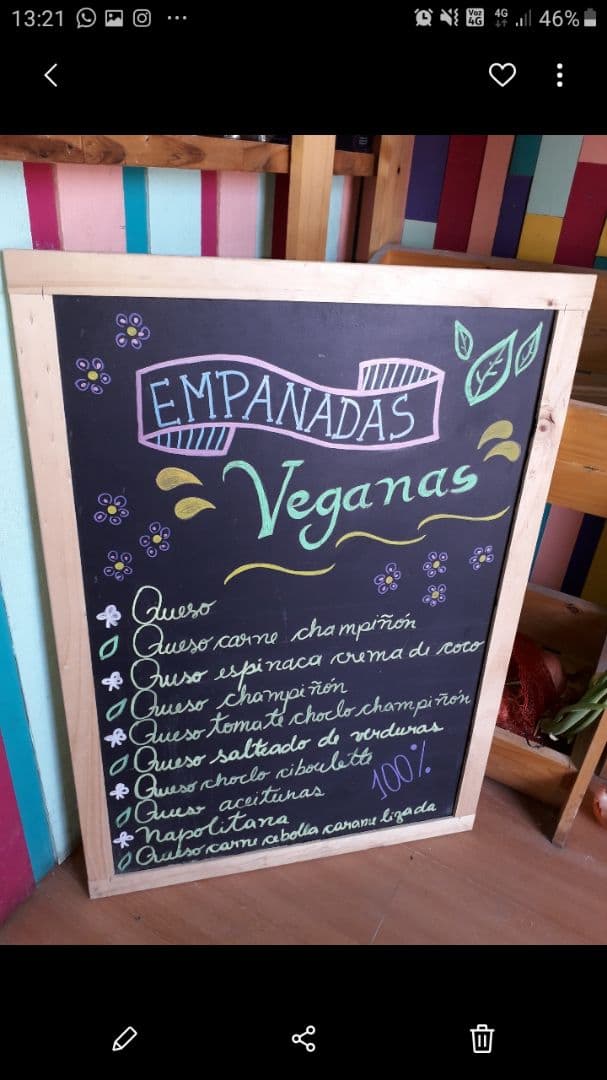 13:21
Voz 4G 4G 46%
EMPANADAS
Veganas
Queso
Queso carne champiñón
Queso espinaca crema de coco
Queso champiñón
Queso tomate choclo champiñón
Queso salteado de verduras
Queso choclo ciboulette
100%
Queso aceitunas
Napolitana
Queso carne cebolla caramelizada